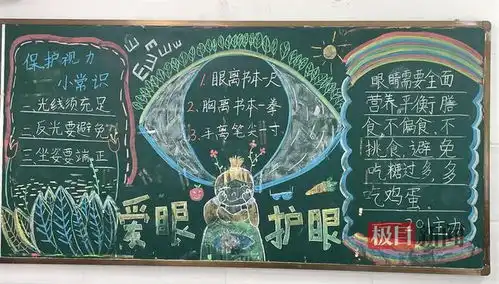 保护视力
小常识
一光线须充足
二反光要避免
三坐姿要端正
E
E
E
E
E
1.眼离书本一尺
2.胸离书本一拳
3.手离笔尖一寸
爱眼 护眼
眼睛需要全面
营养平衡膳
食,不偏食、不
挑食,避免
吃糖过多,多
吃鸡蛋.
极目新闻